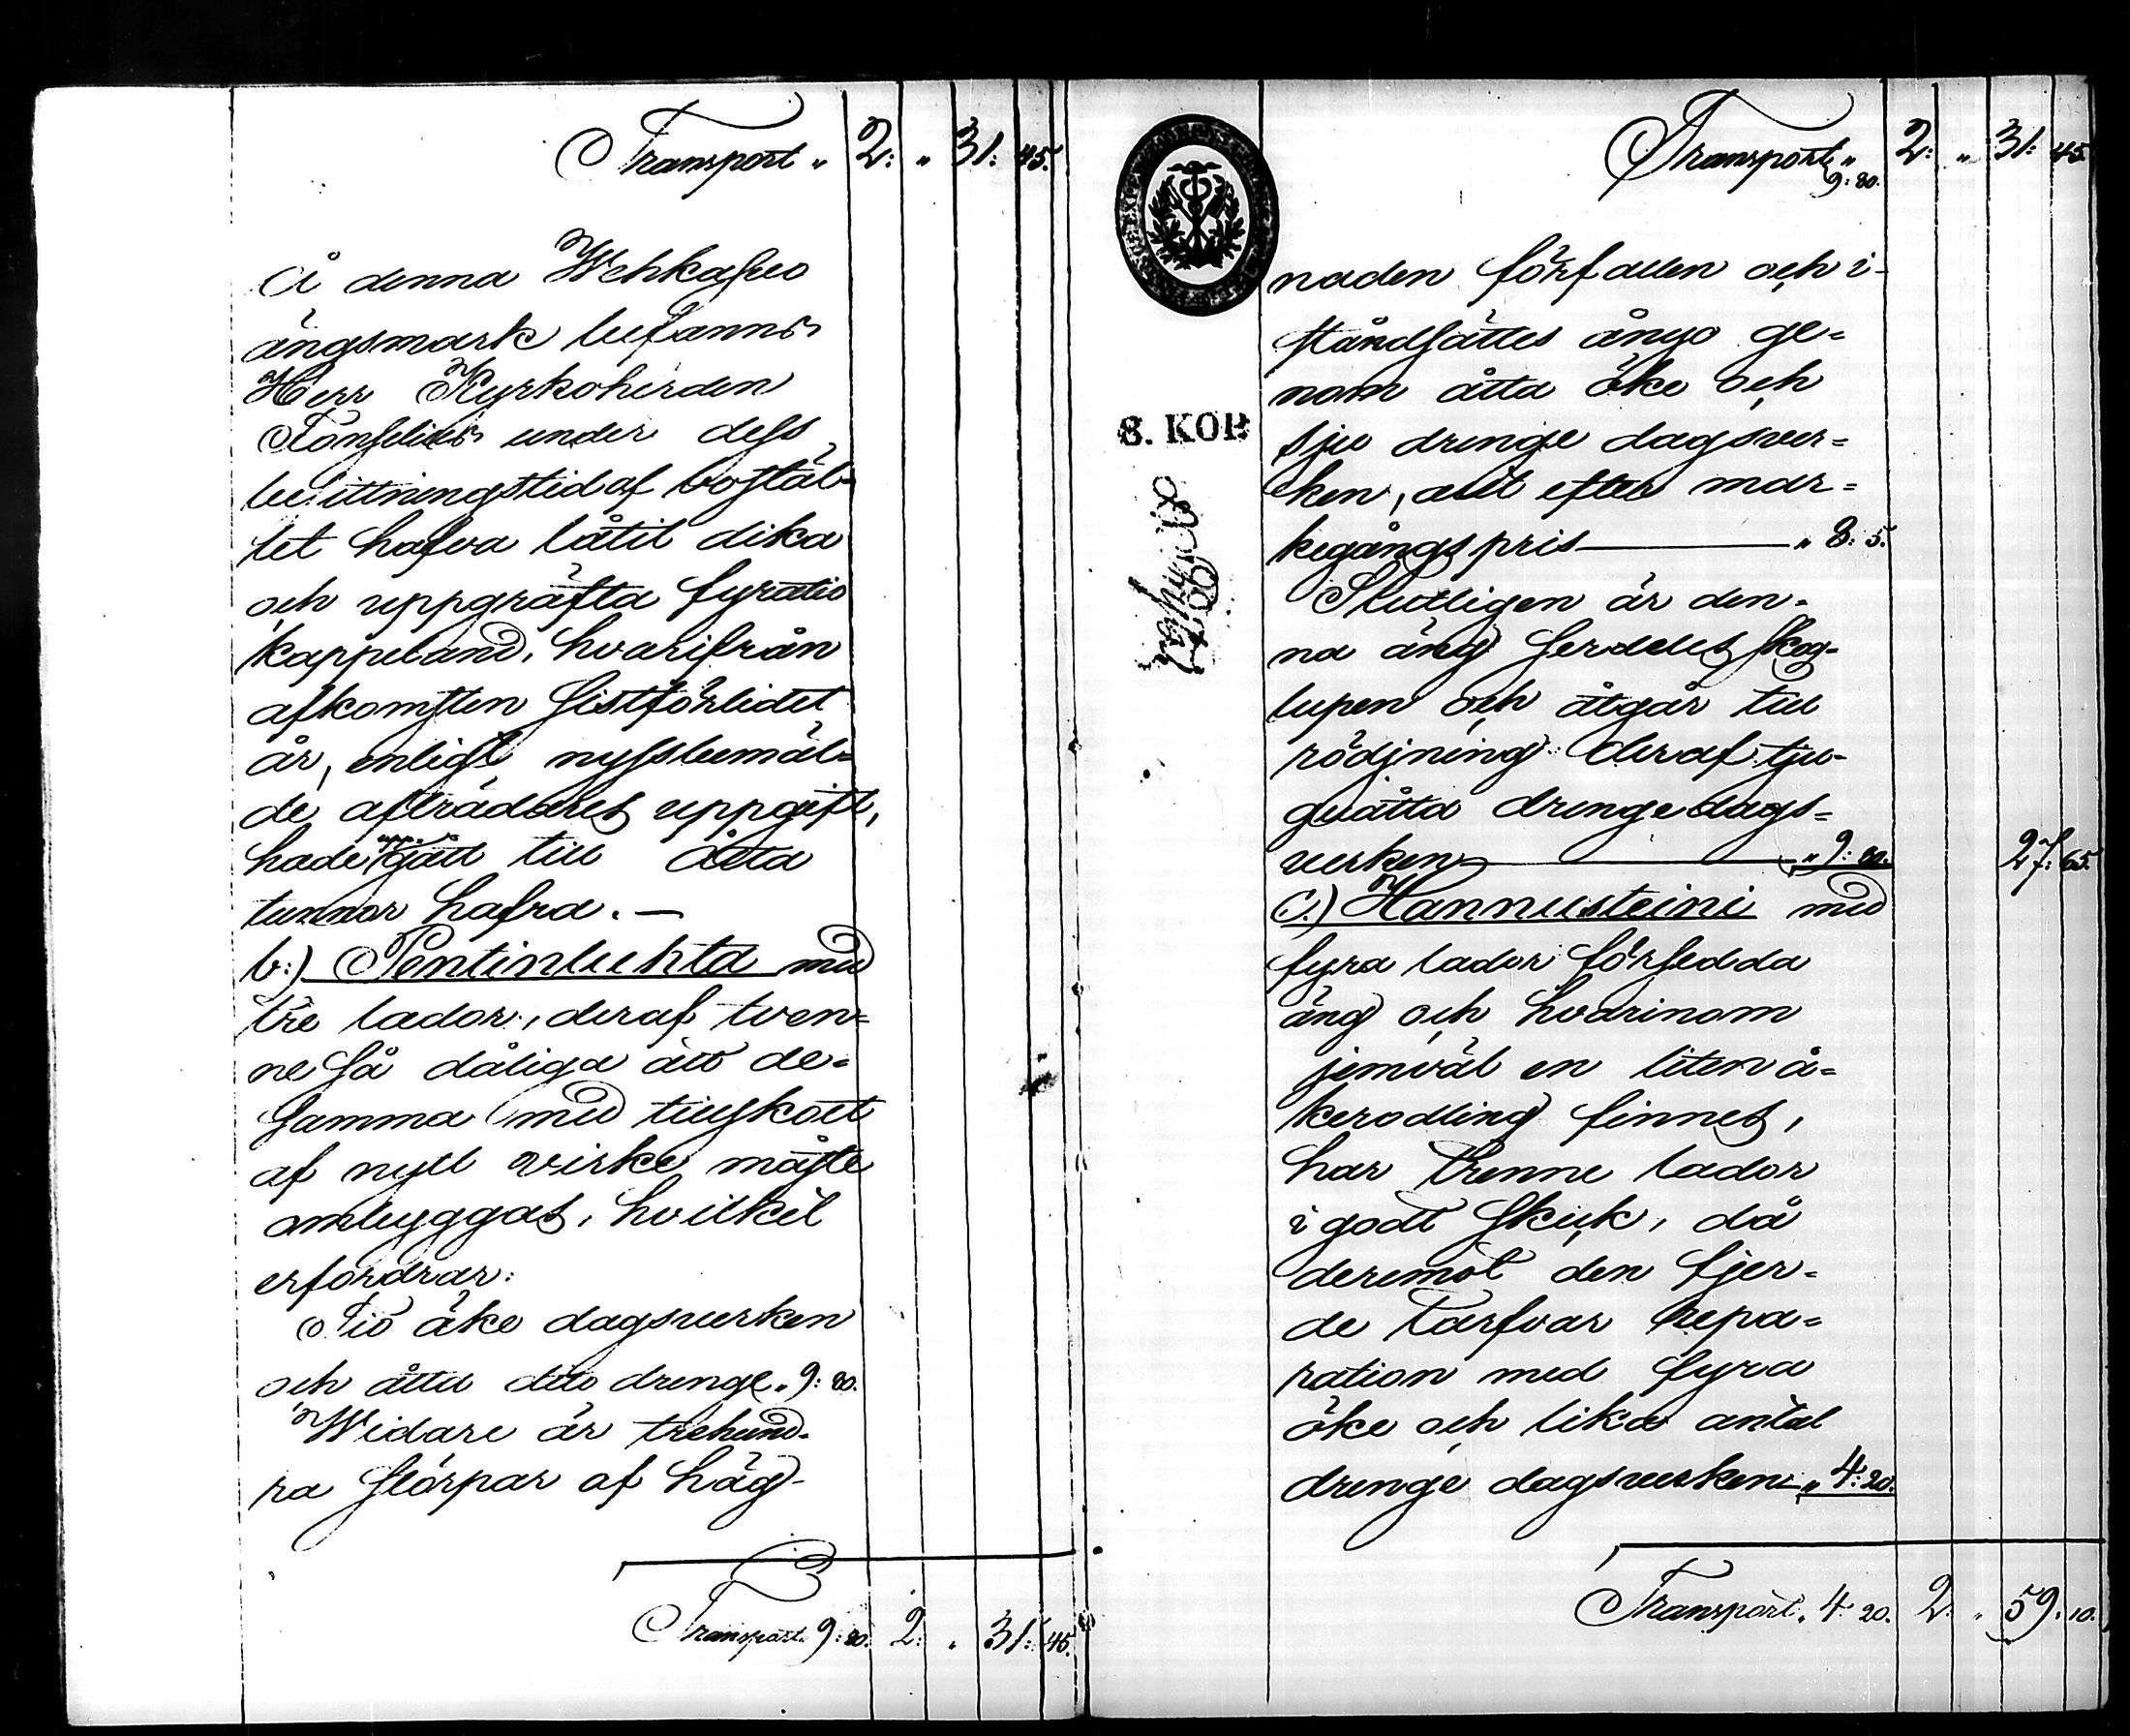 Transport „ 2: „ 31: 45.
Å denna Wehkasuo
ängsmark befanns
Herr Kyrkoherden
under dess
besittningstid af bostäl-
let hafva låtit dika
och uppgräfta fyratio
kappeland, hvarifrån
afkomsten sistförlidet
år, enligt nyssbemäl=
de afträdares uppgift,
hade upp-gått till åtta
tunnor hafra. —
b:) Pentinluhta med
tre lador, deraf tven=
ne så dåliga att de=
samma med tillskott
af nytt virke måste
ombyggas, hvilket
erfordrar:
Tio öke dagsverken
och åtta dito drenge „ 9: 80.
Widare är trehund-
ra störpar af häg-
Transport 9: 80. 2: „ 31: 45.
8. KOP.
Transport „ 2: „ 31: 45.
9: 80.
naden förfallen och i-
ståndsättes ånyo ge=
nom åtta öke och
sju drenge dagsver=
ken, allt efter mar=
kegångspris — „ 8: 5.
Slutligen är den-
na äng serdeles skog-
lupen och åtgår till
rödjning deraf tju-
guåtta drengedags=
verken — „ 9: 80. 27: 65.
c.) Hannusteini med
fyra lador försedda
äng och hvarinom
jemväl en liten å=
kerodling finnes,
har trenne lador
i godt skick, då
deremot den fjer=
de tarfvar repa=
ration med fyra
öke och lika antal
drenge dagsverken „ 4: 20.
Transport „ 4: 20. 2: „ 59: 10.